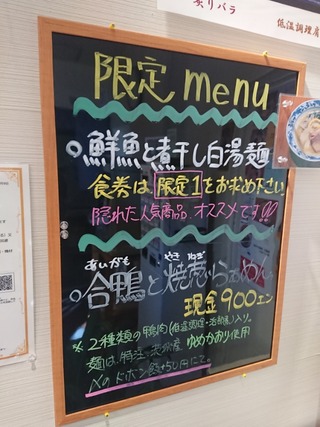 炙りバラ
低温調理肩
限定 menu
○鮮魚と煮干し白湯麺
食券は 限定1をお求め下さい
隠れた人気商品 オススメです!!
あいがも やき ねぎ
○合鴨と焼葱らぁめん
現金900エン
※2種類の鴨肉(低温調理・治部煮)入り。
麺は、特注 産 ゆめかおり使用
〆の ドボン飯+50円にて。